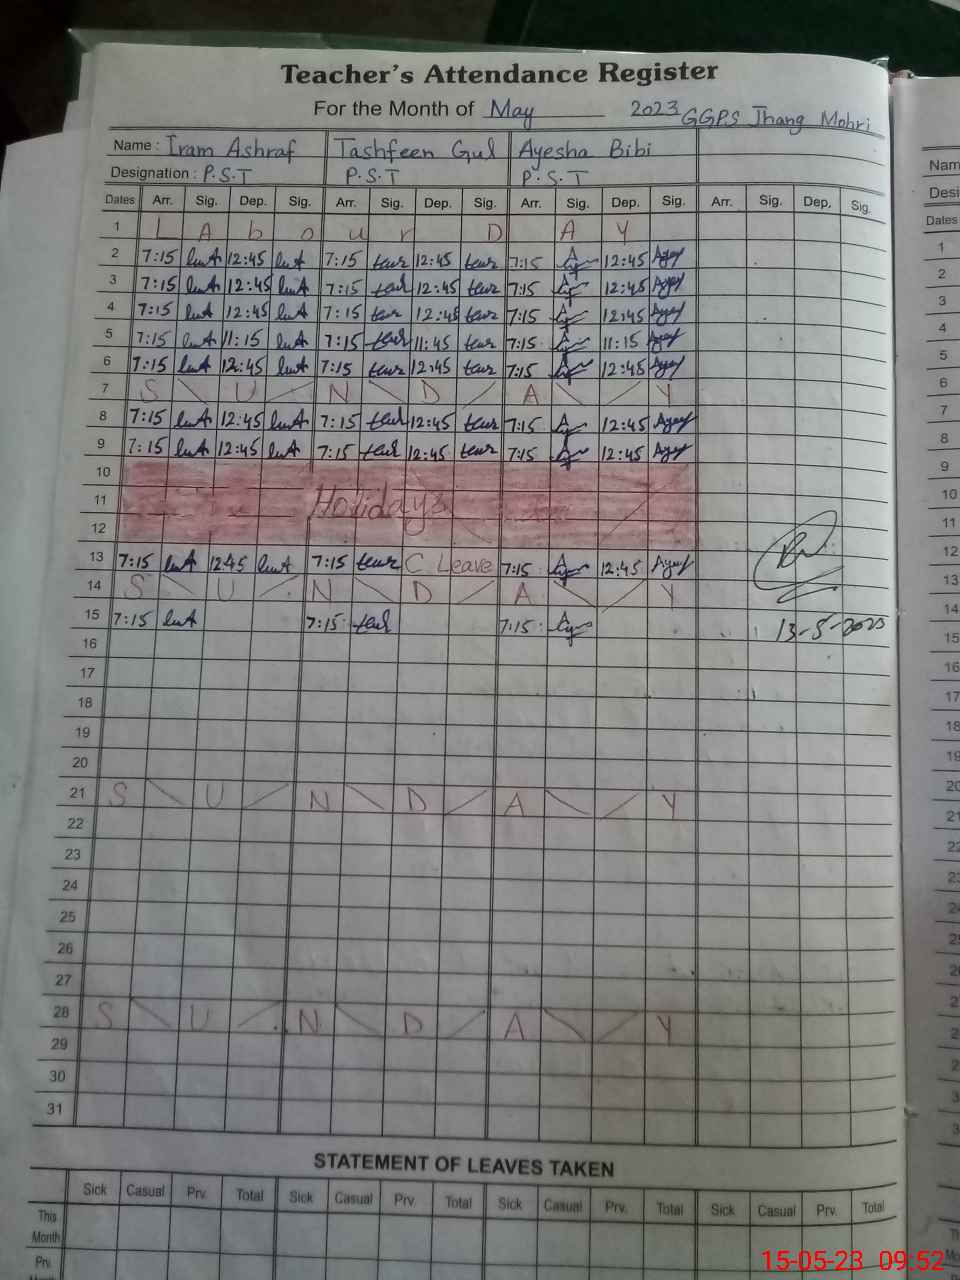 Teacher's Attendance Register
For the Month of May 2023 GGPS Jhang Mohri
Name : Iram Ashraf Tashfeen Gul Ayesha Bibi
Designation : P.S.T P.S.T P.S.T
Dates Arr. Sig. Dep. Sig. Arr. Sig. Dep. Sig. Arr. Sig. Dep. Sig. Arr. Sig. Dep. Sig.
1 L A b o u r D A Y
2 7:15 12:45 7:15 12:45 7:15 12:45
3 7:15 12:45 7:15 12:45 7:15 12:45
4 7:15 12:45 7:15 12:45 7:15 12:45
5 7:15 11:15 7:15 11:45 7:15 11:15
6 7:15 12:45 7:15 12:45 7:15 12:45
7 S U N D A Y
8 7:15 12:45 7:15 12:45 7:15 12:45
9 7:15 12:45 7:15 12:45 7:15 12:45
10
11 Holidays
12
13 7:15 12:45 7:15 C Leave 7:15 12:45
14 S U N D A Y
15 7:15 7:15 7:15 13-5-2023
16
17
18
19
20
21 S U N D A Y
22
23
24
25
26
27
28 S U N D A Y
29
30
31
STATEMENT OF LEAVES TAKEN
Sick Casual Prv. Total Sick Casual Prv. Total Sick Casual Prv. Total Sick Casual Prv. Total
This
Month
Prv.
Nam
Desi
Dates
1
2
3
4
5
6
7
8
9
10
11
12
13
14
15
16
17
18
19
20
15-05-23 09:52